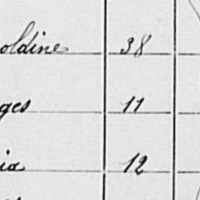 oldine 38
ges 11
ia 12